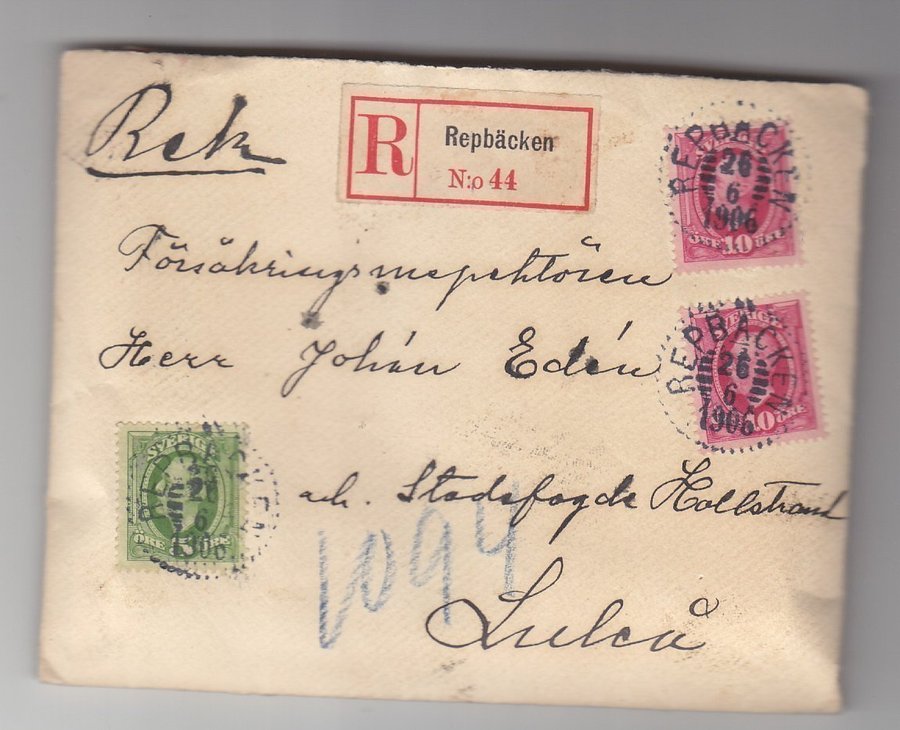 Rek
R
Repbäcken
N:o 44
REPBÄCKEN
26
6
1906
SVERIGE
ÖRE 10 ÖRE
Försäkringsinspektören
Herr Johan Edén
REPBÄCKEN
26
6
1906
SVERIGE
10 ÖRE
REPBÄCKEN
26
6
1906
SVERIGE
ÖRE 5 ÖRE
adr. Stadsfogde Hallstrand
1094
Luleå